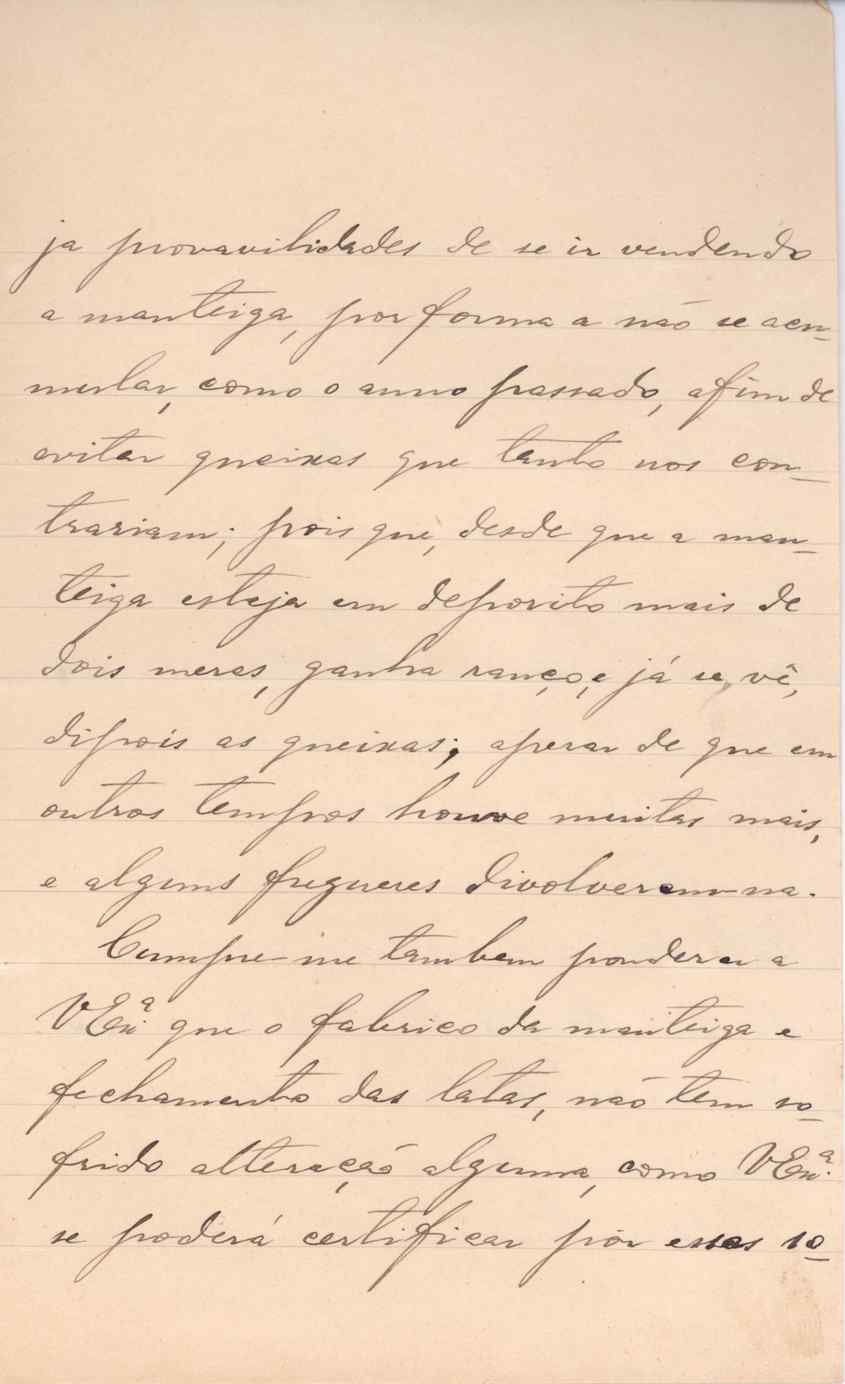 ja provavilidades de se ir vendendo
a manteiga, por forma a não se acu-
mular, como o anno passado, afim de
evitar queixas que tanto nos con-
trariam; pois que, desde que a man-
teiga esteja em deposito mais de
dois meses, ganha ranço, e já se vê,
dipois as queixas; apesar de que em
outros tempos houve muitas mais,
e alguns freguezes divolveram-na.
Cumpre-me tambem ponderar a
VExª que o fabrico da manteiga e
fechamento das latas, não tem so-
frido alteração alguma, como VExª
se poderá certificar por esses so-